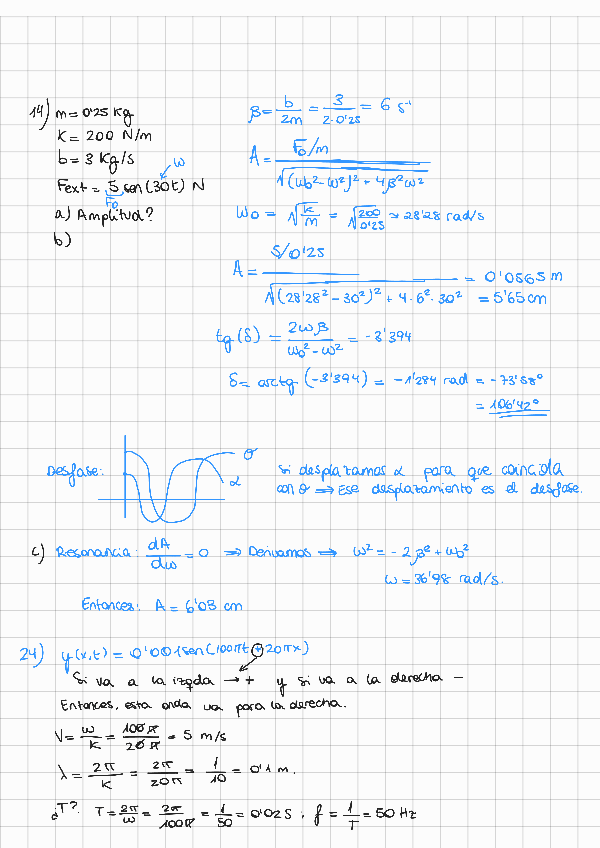 14) m = 0'25 kg
K = 200 N/m
b = 3 kg/s
w
Fext = 5 sen (30t) N
F₀
a) Amplitud?
b)
β = b/2m = 3/2·0'25 = 6 s⁻¹
A = F₀/m / √((w₀² - w²)² + 4β²w²)
w₀ = √(K/m) = √(200/0'25) ≈ 28'28 rad/s
A = 5/0'25 / √((28'28² - 30²)² + 4·6²·30²) = 0'0565 m
= 5'65 cm
tg (δ) = 2wβ / w₀² - w² = -3'394
δ = arctg (-3'394) = -1'284 rad = -73'58°
= 106'42°
Desfase:
θ
α
Si desplazamos α para que coincida
con θ ⇒ Ese desplazamiento es el desfase.
c) Resonancia: dA/dw = 0 ⇒ Derivamos ⇒ w² = -2β² + w₀²
w = 36'98 rad/s.
Entonces: A = 6'03 cm
24) y(x,t) = 0'001 sen (100πt - 20πx)
Si va a la izqda → + y si va a la derecha -
Entonces, esta onda va para la derecha.
V = w/K = 100π/20π = 5 m/s
λ = 2π/K = 2π/20π = 1/10 = 0'1 m.
¿T?. T = 2π/w = 2π/100π = 1/50 = 0'02 s, f = 1/T = 50 Hz